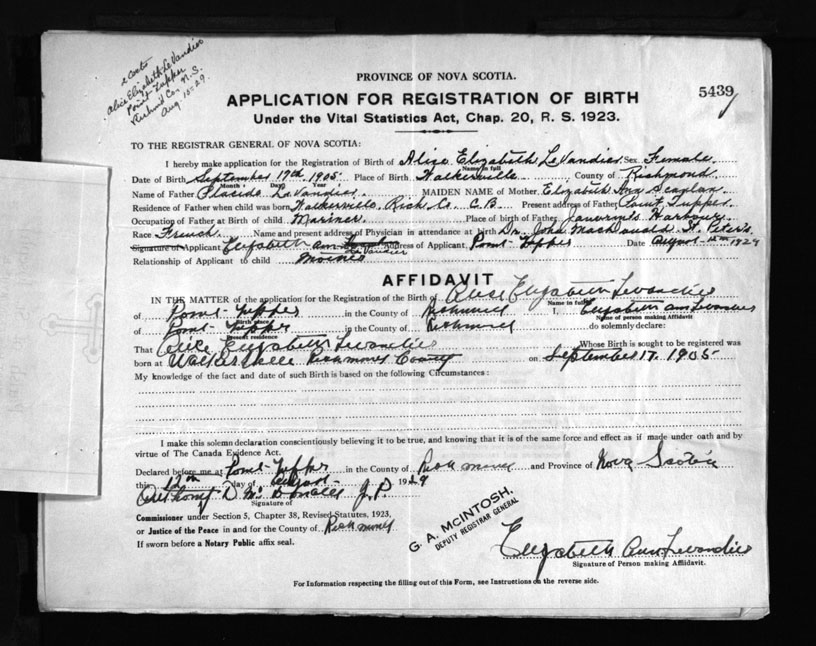 2 certs
Alice Elizabeth LeVandier
Point Tupper
Richmond Co., N.S.
Aug 15-29.
5439
PROVINCE OF NOVA SCOTIA.
APPLICATION FOR REGISTRATION OF BIRTH
Under the Vital Statistics Act, Chap. 20, R. S. 1923.
TO THE REGISTRAR GENERAL OF NOVA SCOTIA:
I hereby make application for the Registration of Birth of Alice Elizabeth LeVandier Sex Female
Name in full
Date of Birth September 17th 1905 Place of Birth Walkerville County of Richmond
Month Day Year
Name of Father Placide LeVandier MAIDEN NAME of Mother Elizabeth Ann Scanlan
Residence of Father when child was born Walkerville, Rich. Co. C.B. Present address of Father Point Tupper
Occupation of Father at Birth of child Mariner Place of birth of Father Janvrin's Harbour
Race French Name and present address of Physician in attendance at birth Dr. John MacDonald St. Peter's
Signature of Applicant Elizabeth Ann Levandier Address of Applicant Point Tupper Date August 12th 1929
Relationship of Applicant to child Mother
AFFIDAVIT
IN THE MATTER of the application for the Registration of the Birth of Alice Elizabeth Levandier
Name in full
of Point Tupper in the County of Richmond I, Elizabeth Ann Levandier
Name of person making Affidavit
of Point Tupper in the County of Richmond do solemnly declare:
Present residence
That Alice Elizabeth Levandier Whose Birth is sought to be registered was
born at Walkerville Richmond County on September 17 1905
My knowledge of the fact and date of such Birth is based on the following Circumstances:
I make this solemn declaration conscientiously believing it to be true, and knowing that it is of the same force and effect as if made under oath and by
virtue of The Canada Evidence Act.
Declared before me at Point Tupper in the County of Richmond and Province of Nova Scotia
this 12th day of August 1929
Anthony D McDonald J.P.
Signature of
Commissioner under Section 5, Chapter 38, Revised Statutes, 1923,
or Justice of the Peace in and for the County of Richmond
If sworn before a Notary Public affix seal.
G. A. McINTOSH,
DEPUTY REGISTRAR GENERAL
Elizabeth Ann Levandier
Signature of Person making Affidavit.
For Information respecting the filling out of this Form, see Instructions on the reverse side.